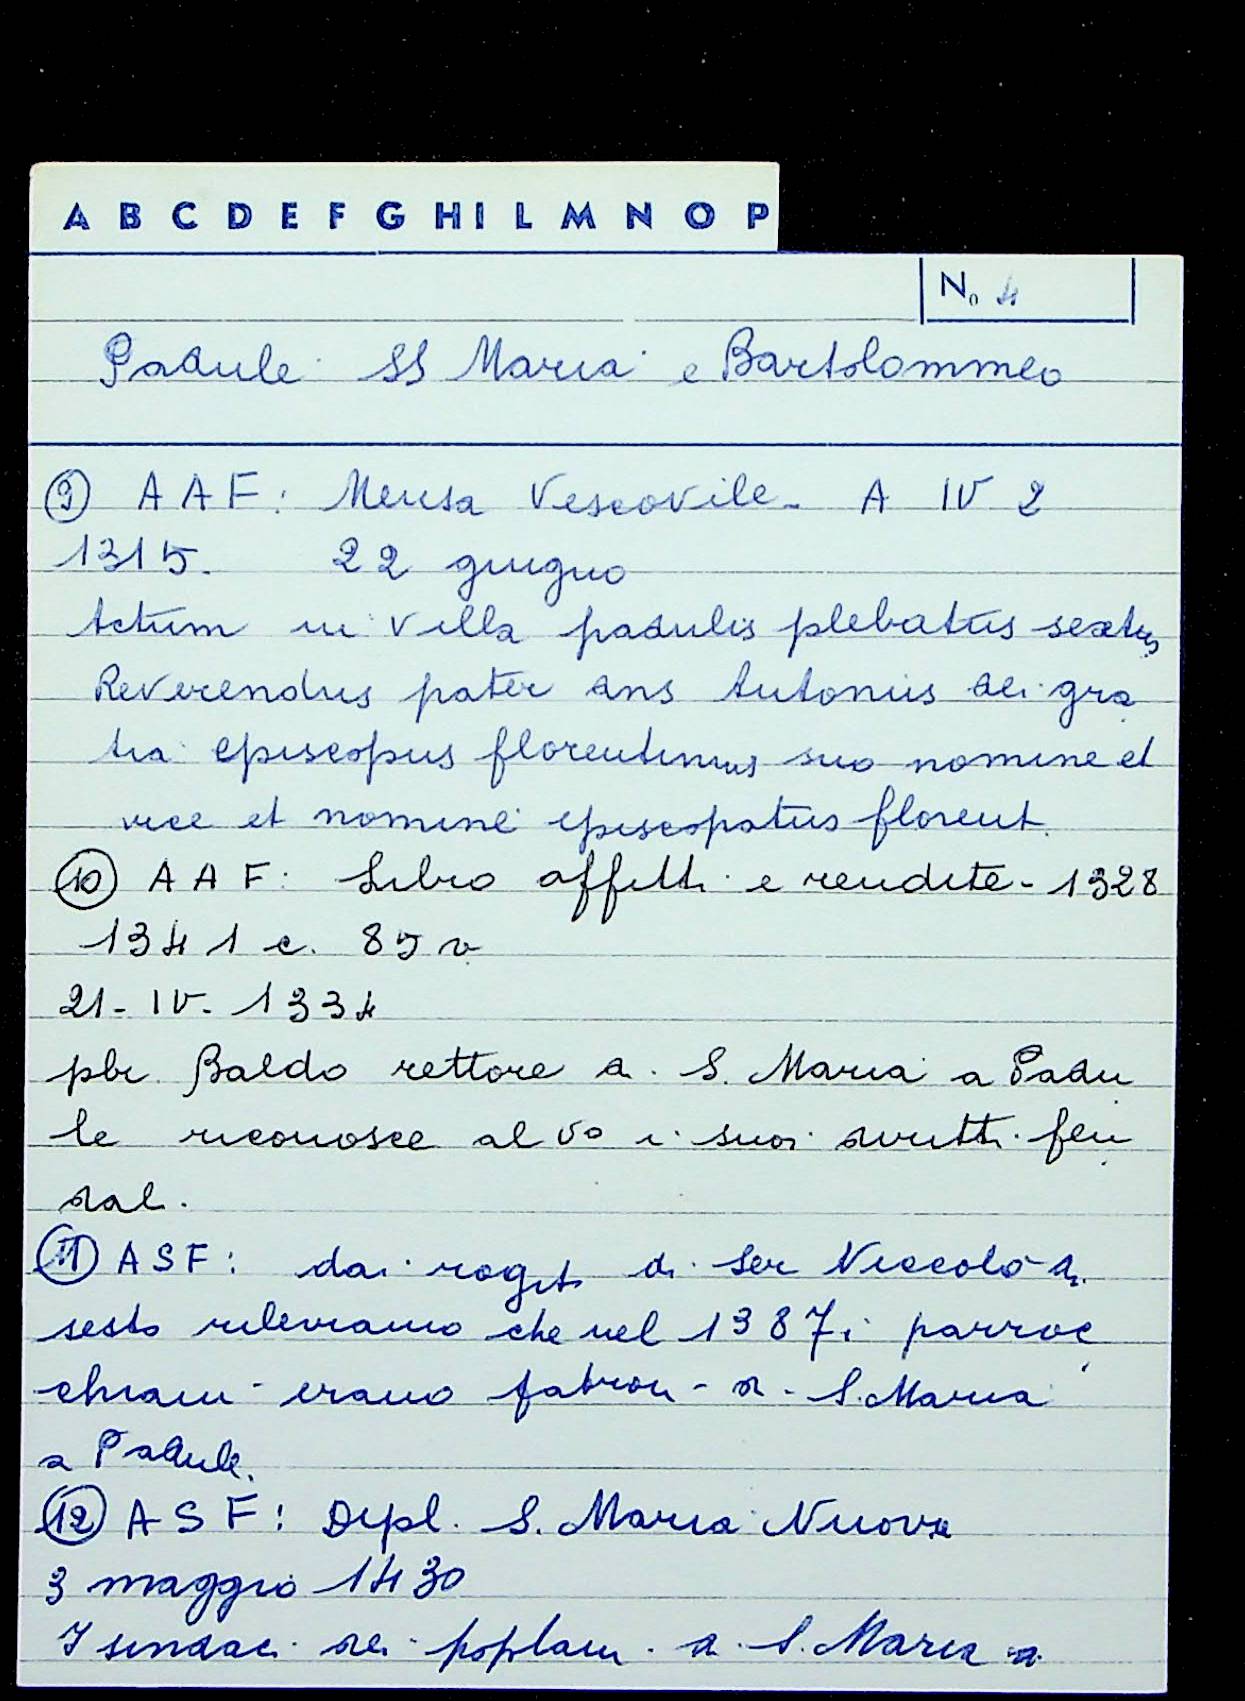 A B C D E F G H I L M N O P
No 4
Padule SS Maria e Bartolommeo
9) A A F: Mensa Vescovile - A IV 2
1315. 22 giugno
Actum in villa padulis plebatus sextus
Reverendus pater dns Antonius dei gra
tia episcopus florentinus suo nomine et
vice et nomine episcopatus florent.
10) A A F: Libro affitti e rendite - 1328
1341 c. 85 v
21 - IV - 1334
pbr. Baldo rettore di S. Maria a Padu
le riconosce al vo i suoi diritti feu
dali.
11) A S F: dai rogiti di ser Niccolò di
sesto rileviamo che nel 1387 i parroc
chiani erano patroni di S. Maria
a Padule.
12) A S F: Dipl. S. Maria Nuova
3 maggio 1430
I sindaci dei popolani di S. Maria a